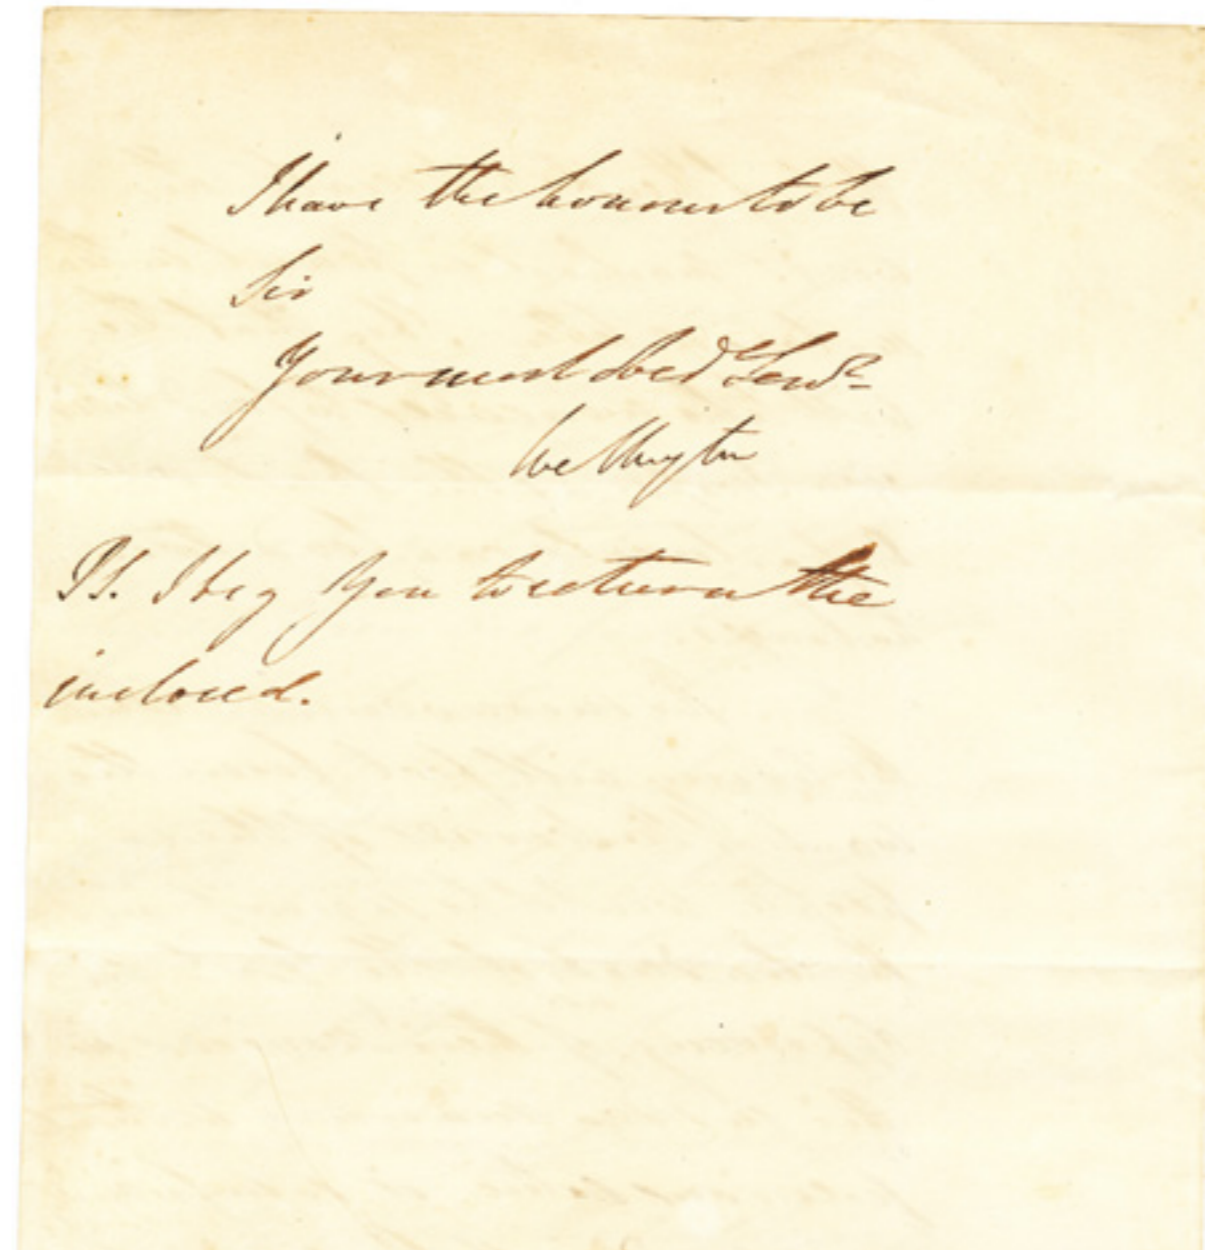 I have the honour to be
Sir
Your most obed^t Serv^t
Wellington
PS. I beg You to return the
inclosed.